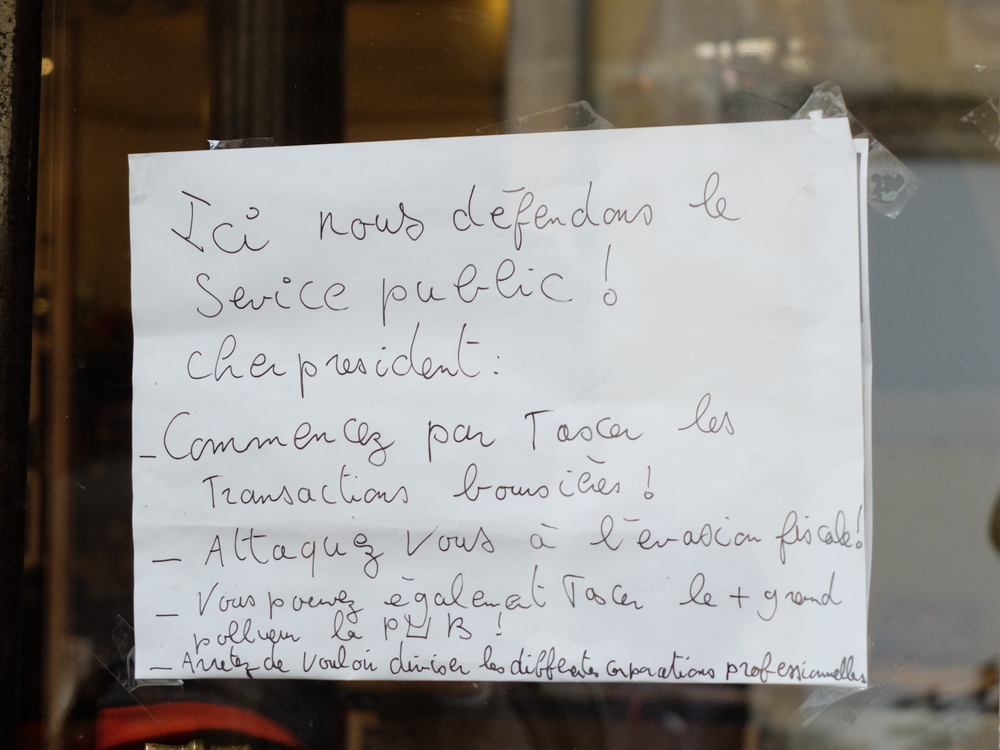 Ici nous défendons le
Service public !
cher president :
- Commencez par Taxer les
Transactions boursières !
- Attaquez Vous à l'évasion fiscale !
- Vous pouvez également Taxer le + grand
pollueur la PUB !
- Arretez de Vouloir diviser les différentes corporations professionnelles